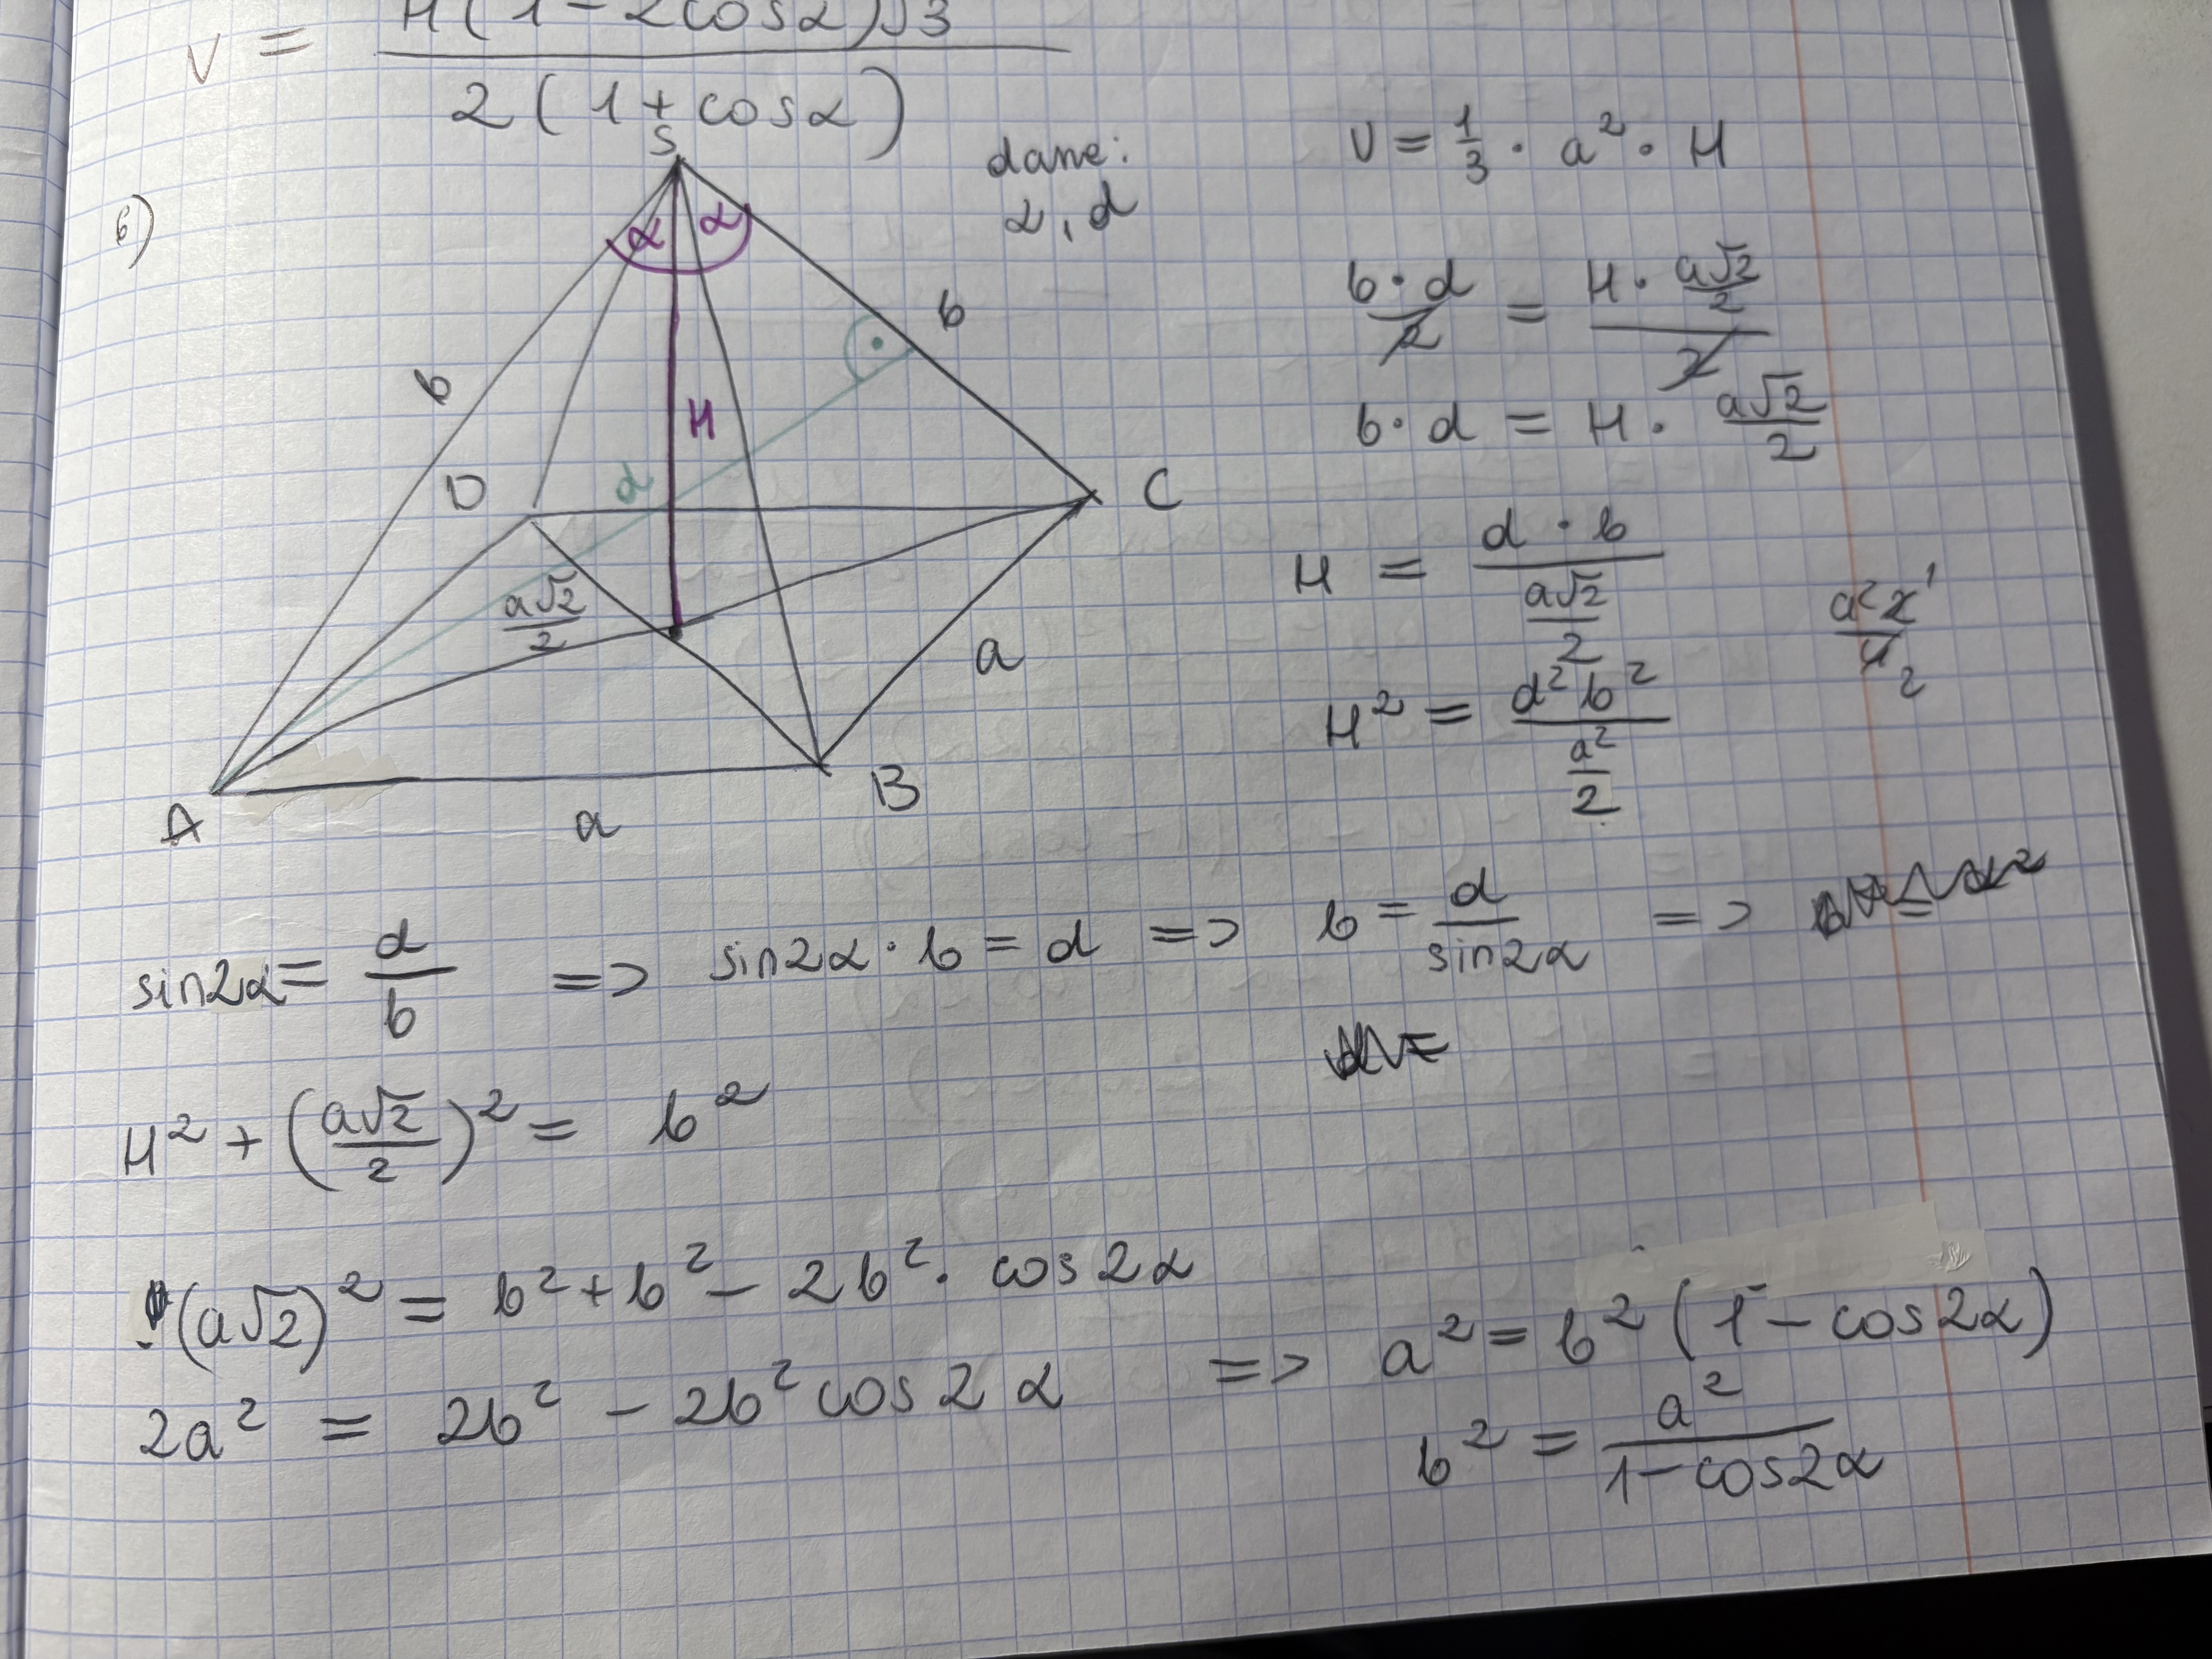 V = H(1-2cosα)√3 / 2(1+cosα)
6)
S
dane:
α, d
α α
b b
H
d
D C
a√2/2
a
A B
a
V = 1/3 · a² · H
b·d/2 = H · a√2/2 / 2
b·d = H · a√2/2
H = d·b / a√2/2
a²2 1 / 4 2
H² = d²b² / a²/2
sin2α = d/b => sin2α · b = d => b = d/sin2α =>
H² + (a√2/2)² = b²
(a√2)² = b² + b² - 2b² · cos2α
2a² = 2b² - 2b² cos2α => a² = b² (1 - cos2α)
b² = a² / 1-cos2α